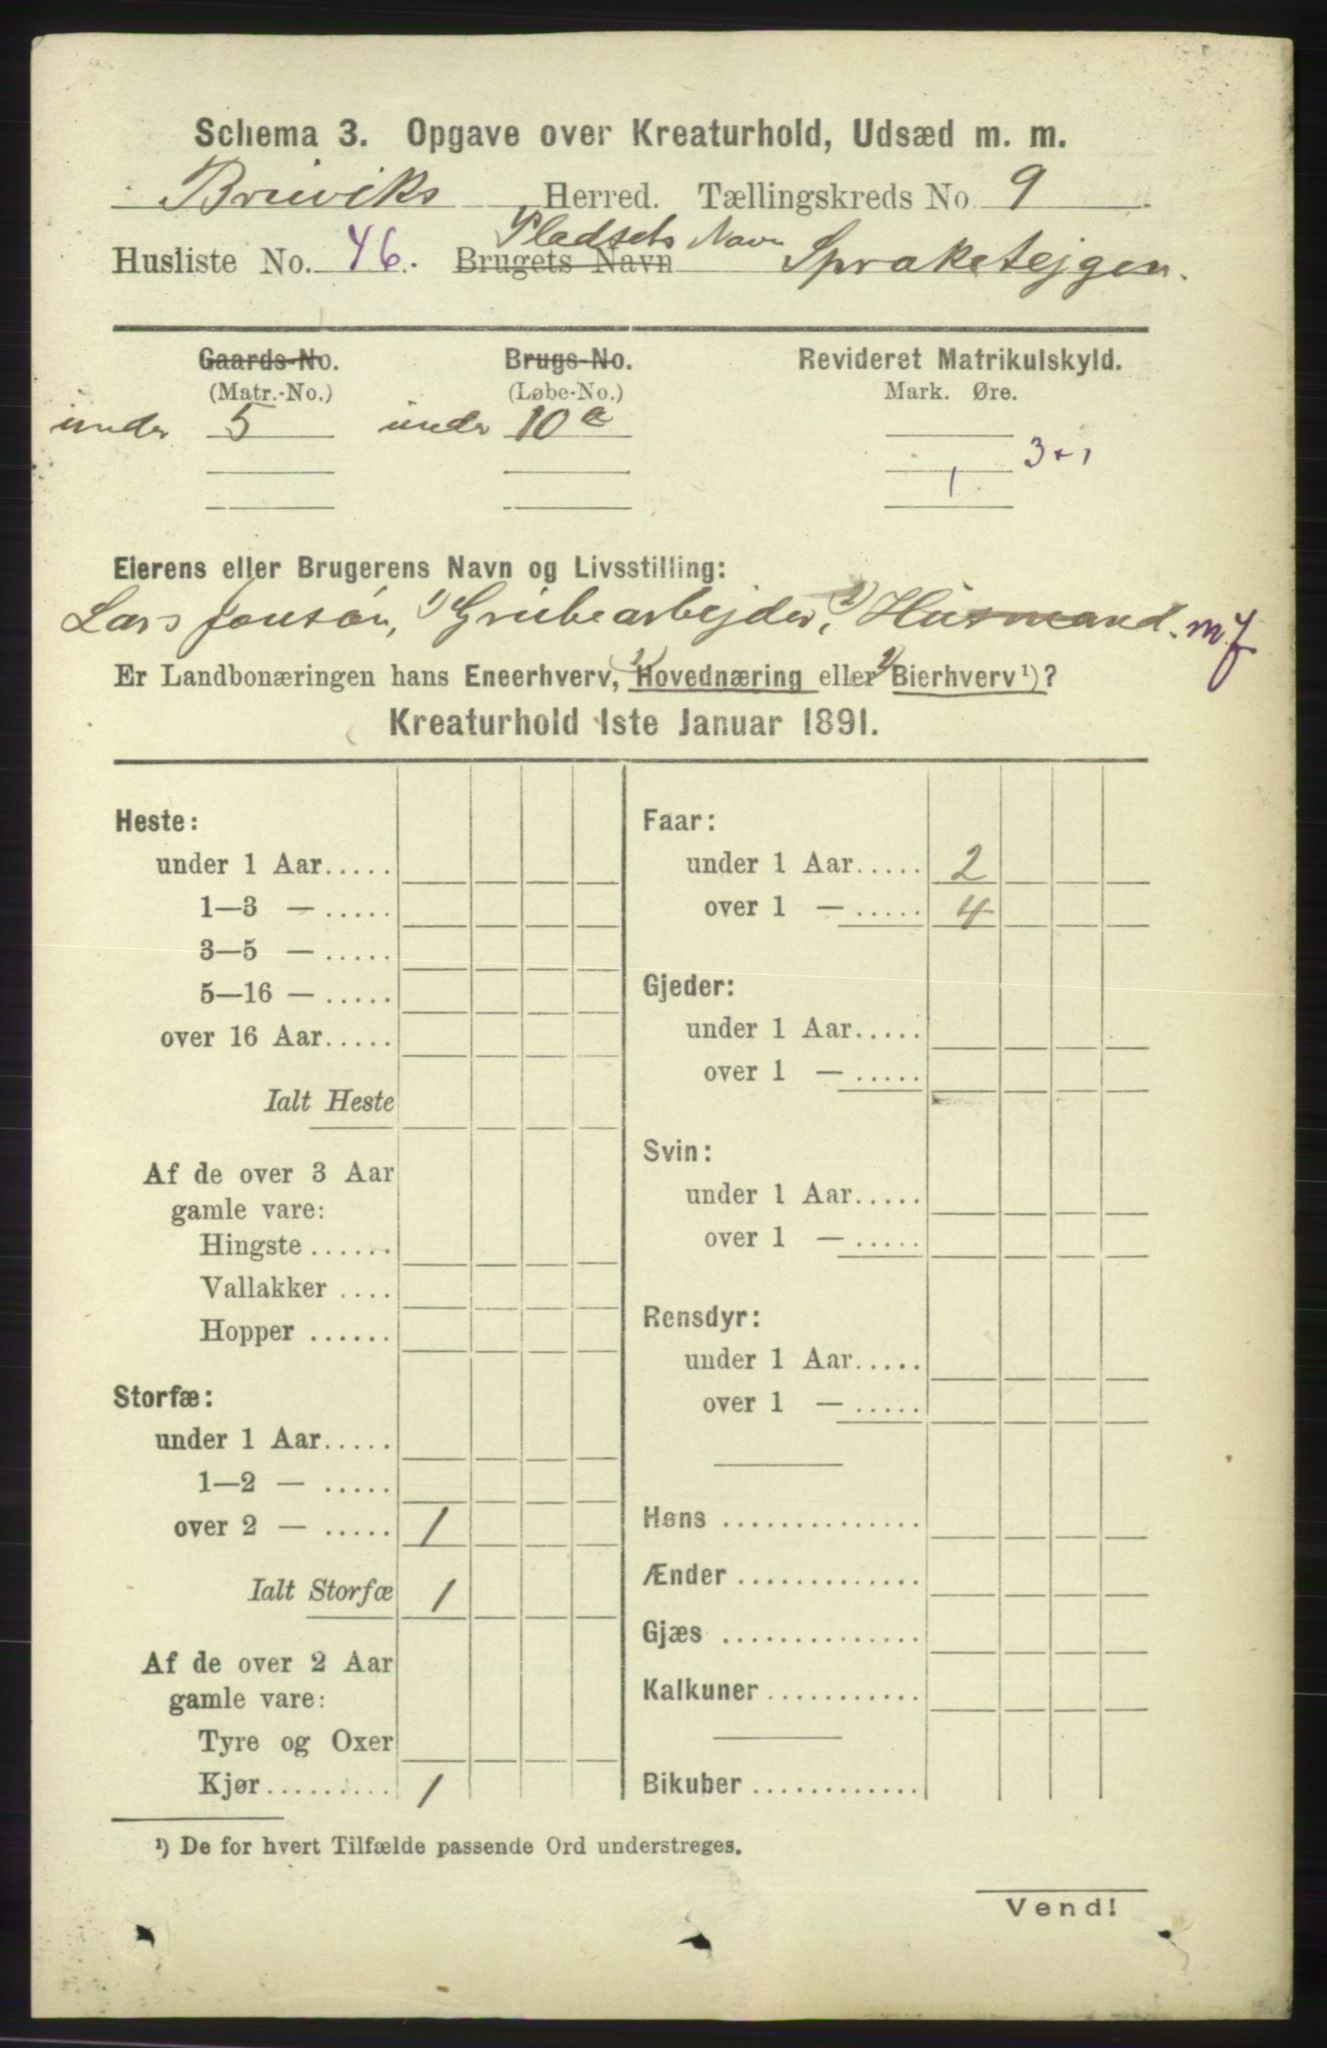 Schema 3. Opgave over Kreaturhold, Udsæd m. m.
Bruviks Herred. Tællingskreds No 9
Husliste No. 46. Brugets Navn Pladsets Navn Spraketejgen.
Gaards-No. Brugs-No. Revideret Matrikulskyld.
(Matr.-No.) (Løbe-No.) Mark. Øre.
under 5 under 10 a
3+1
1
Eierens eller Brugerens Navn og Livsstilling:
Lars Jonsön, 1) Grubearbejder, 2) Husmand. m. j
Er Landbonæringen hans Eneerhverv, 1) Hovednæring eller 2) Bierhverv ¹)?
Kreaturhold 1ste Januar 1891.
Heste:
under 1 Aar.....
1—3 — .....
3—5 — .....
5—16 — .....
over 16 Aar.....
Ialt Heste
Af de over 3 Aar
gamle vare:
Hingste ......
Vallakker ....
Hopper ......
Storfæ:
under 1 Aar.....
1—2 — .....
over 2 — ..... 1
Ialt Storfæ 1
Af de over 2 Aar
gamle vare:
Tyre og Oxer
Kjør......... 1
Faar:
under 1 Aar..... 2
over 1 — ..... 4
Gjeder:
under 1 Aar.....
over 1 — .....
Svin:
under 1 Aar.....
over 1 — .....
Rensdyr:
under 1 Aar.....
over 1 — .....
Høns ..............
Ænder .............
Gjæs ..............
Kalkuner...........
Bikuber ............
¹) De for hvert Tilfælde passende Ord understreges.
Vend!